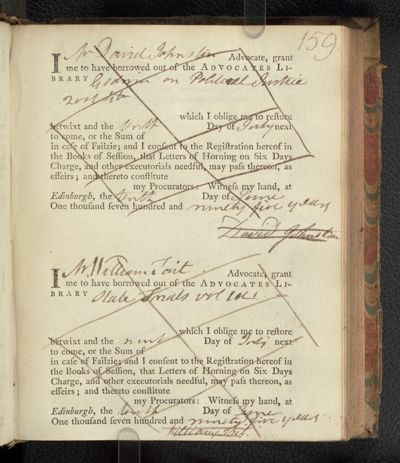 159.
I Mr David Johnston Advocate, grant
me to have borrowed out of the ADVOCATES LI-
BRARY Godwin on Political Justice
2 vol
which I oblige me to reſtore
betwixt and the tenth Day of July next
to come, or the Sum of
in caſe of Failzie; and I conſent to the Regiſtration hereof in
the Books of Seſſion, that Letters of Horning on Six Days
Charge, and other executorials needful, may paſs thereon, as
effeirs; and thereto conſtitute
my Procurators: Witneſs my hand, at
Edinburgh, the tenth Day of June
One thouſand ſeven hundred and ninety five years
David Johnston
I Mr William Tait Advocate, grant
me to have borrowed out of the ADVOCATES LI-
BRARY State Trials vol
which I oblige me to reſtore
betwixt and the Day of July next
to come, or the Sum of
in caſe of Failzie; and I conſent to the Regiſtration hereof in
the Books of Seſſion, that Letters of Horning on Six Days
Charge, and other executorials needful, may paſs thereon, as
effeirs; and thereto conſtitute
my Procurators: Witneſs my hand, at
Edinburgh, the tenth Day of June
One thouſand ſeven hundred and ninety five years
William Tait